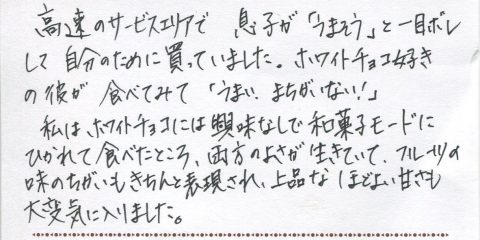 高速のサービスエリアで 息子が「うまそう」と一目ボレ
して自分のために買っていました。ホワイトチョコ好き
の彼が 食べてみて「うまい、まちがいない!」
私はホワイトチョコには興味なしで和菓子モードに
ひかれて食べたところ、両方のよさが生きていて、フルーツの
味のちがいもきちんと表現され、上品な ほどよい甘さも
大変気に入りました。